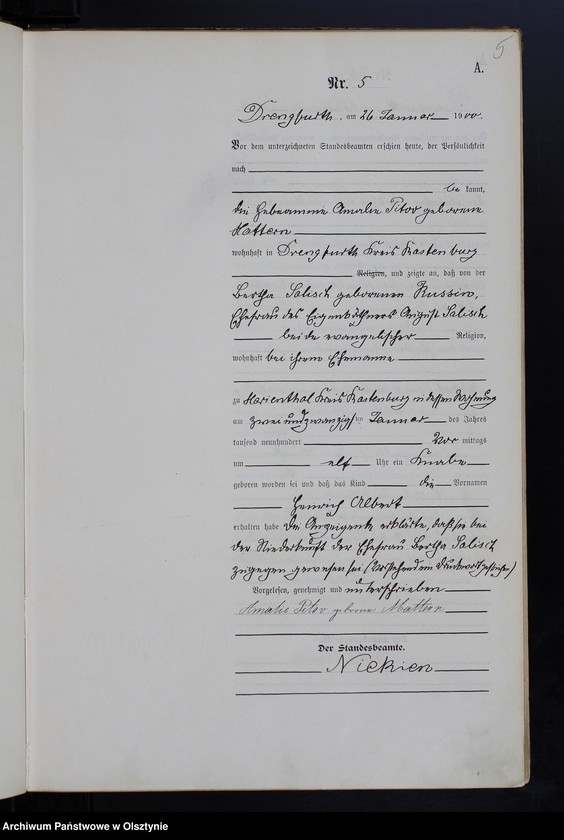 5
A.
Nr. 5
Drengfurth, am 26 Januar 1900.
Vor dem unterzeichneten Standesbeamten erschien heute, der Persönlichkeit
nach
be kannt,
die Hebeamme Amalie Pitor geborene
Mattern
wohnhaft in Drengfurth Kreis Rastenburg
Religion, und zeigte an, daß von der
Bertha Salisch geborenen Russin,
Ehefrau des Eigenkäthners August Salisch
beide evangelischer Religion,
wohnhaft bei ihrem Ehemanne
zu Marienthal Kreis Rastenburg in dessen Wohnung
am zwei und zwanzigsten Januar des Jahres
tausend neunhundert Vor mittags
um elf Uhr ein Knabe
geboren worden sei und daß das Kind die Vornamen
Heinrich Albert
erhalten habe Die Anzeigende erklärte, daß sie bei
der Niederkunft der Ehefrau Bertha Salisch
zugegen gewesen sei (Vorstehend ein Druckwort gestrichen)
Vorgelesen, genehmigt und unterschrieben
Amalie Pitor geborene Mattern
Der Standesbeamte.
Nickien
Archiwum Państwowe w Olsztynie